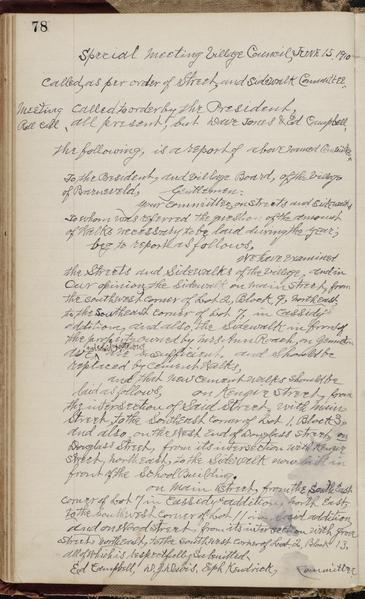 78
Special Meeting Village Council, JUNE 15, 1910
Called, as per order of Street, and Sidewalk Committee.
Meeting called to order by the President,
Roll Call, all present, but Dave Jones & Ed Campbell,
The following, is a report of above named Committee
To the President, and Village Board, of the Village
of Barneveld, Gentlemen:
Your Committee, on Streets and Sidewalks
to whom was referred the question of the amount
of Walks necessary to be laid during the year;
beg to report as follows,
We have examined
the Streets and Sidewalks of the Village, and in
Our opinion, the Sidewalk on main Street, from
the southwest corner of Lot 2, Block 9, northeast,
to the Southeast corner of Lot 7, in Cassidy's
addition, and also, the Sidewalk in front of
the property owned by Mrs Ann Roach, on
are insufficient, and should be
replaced by Cement Walks,
and that new cement walks should be
laid as follows, on Street, from
the intersection of Said Street, with main
Street, to the Southeast corner of Lot 1, Block 3,
and also on the West End of Douglass Street, on
Douglass Street, from its intersection with
Street, northeast, to the Sidewalk now laid in
front of the School Building.
on Main Street, from the South East
corner of Lot 7 in Cassidy's addition, north East,
to the Southwest Corner of Lot 1, in said addition
and on Wood Street, from its intersection with
Street, northeast, to the Southwest corner of Lot 2, Block 13,
all of which is respectfully Submitted
Ed Campbell, W. J. Davis, Eph Kendrick, Committee